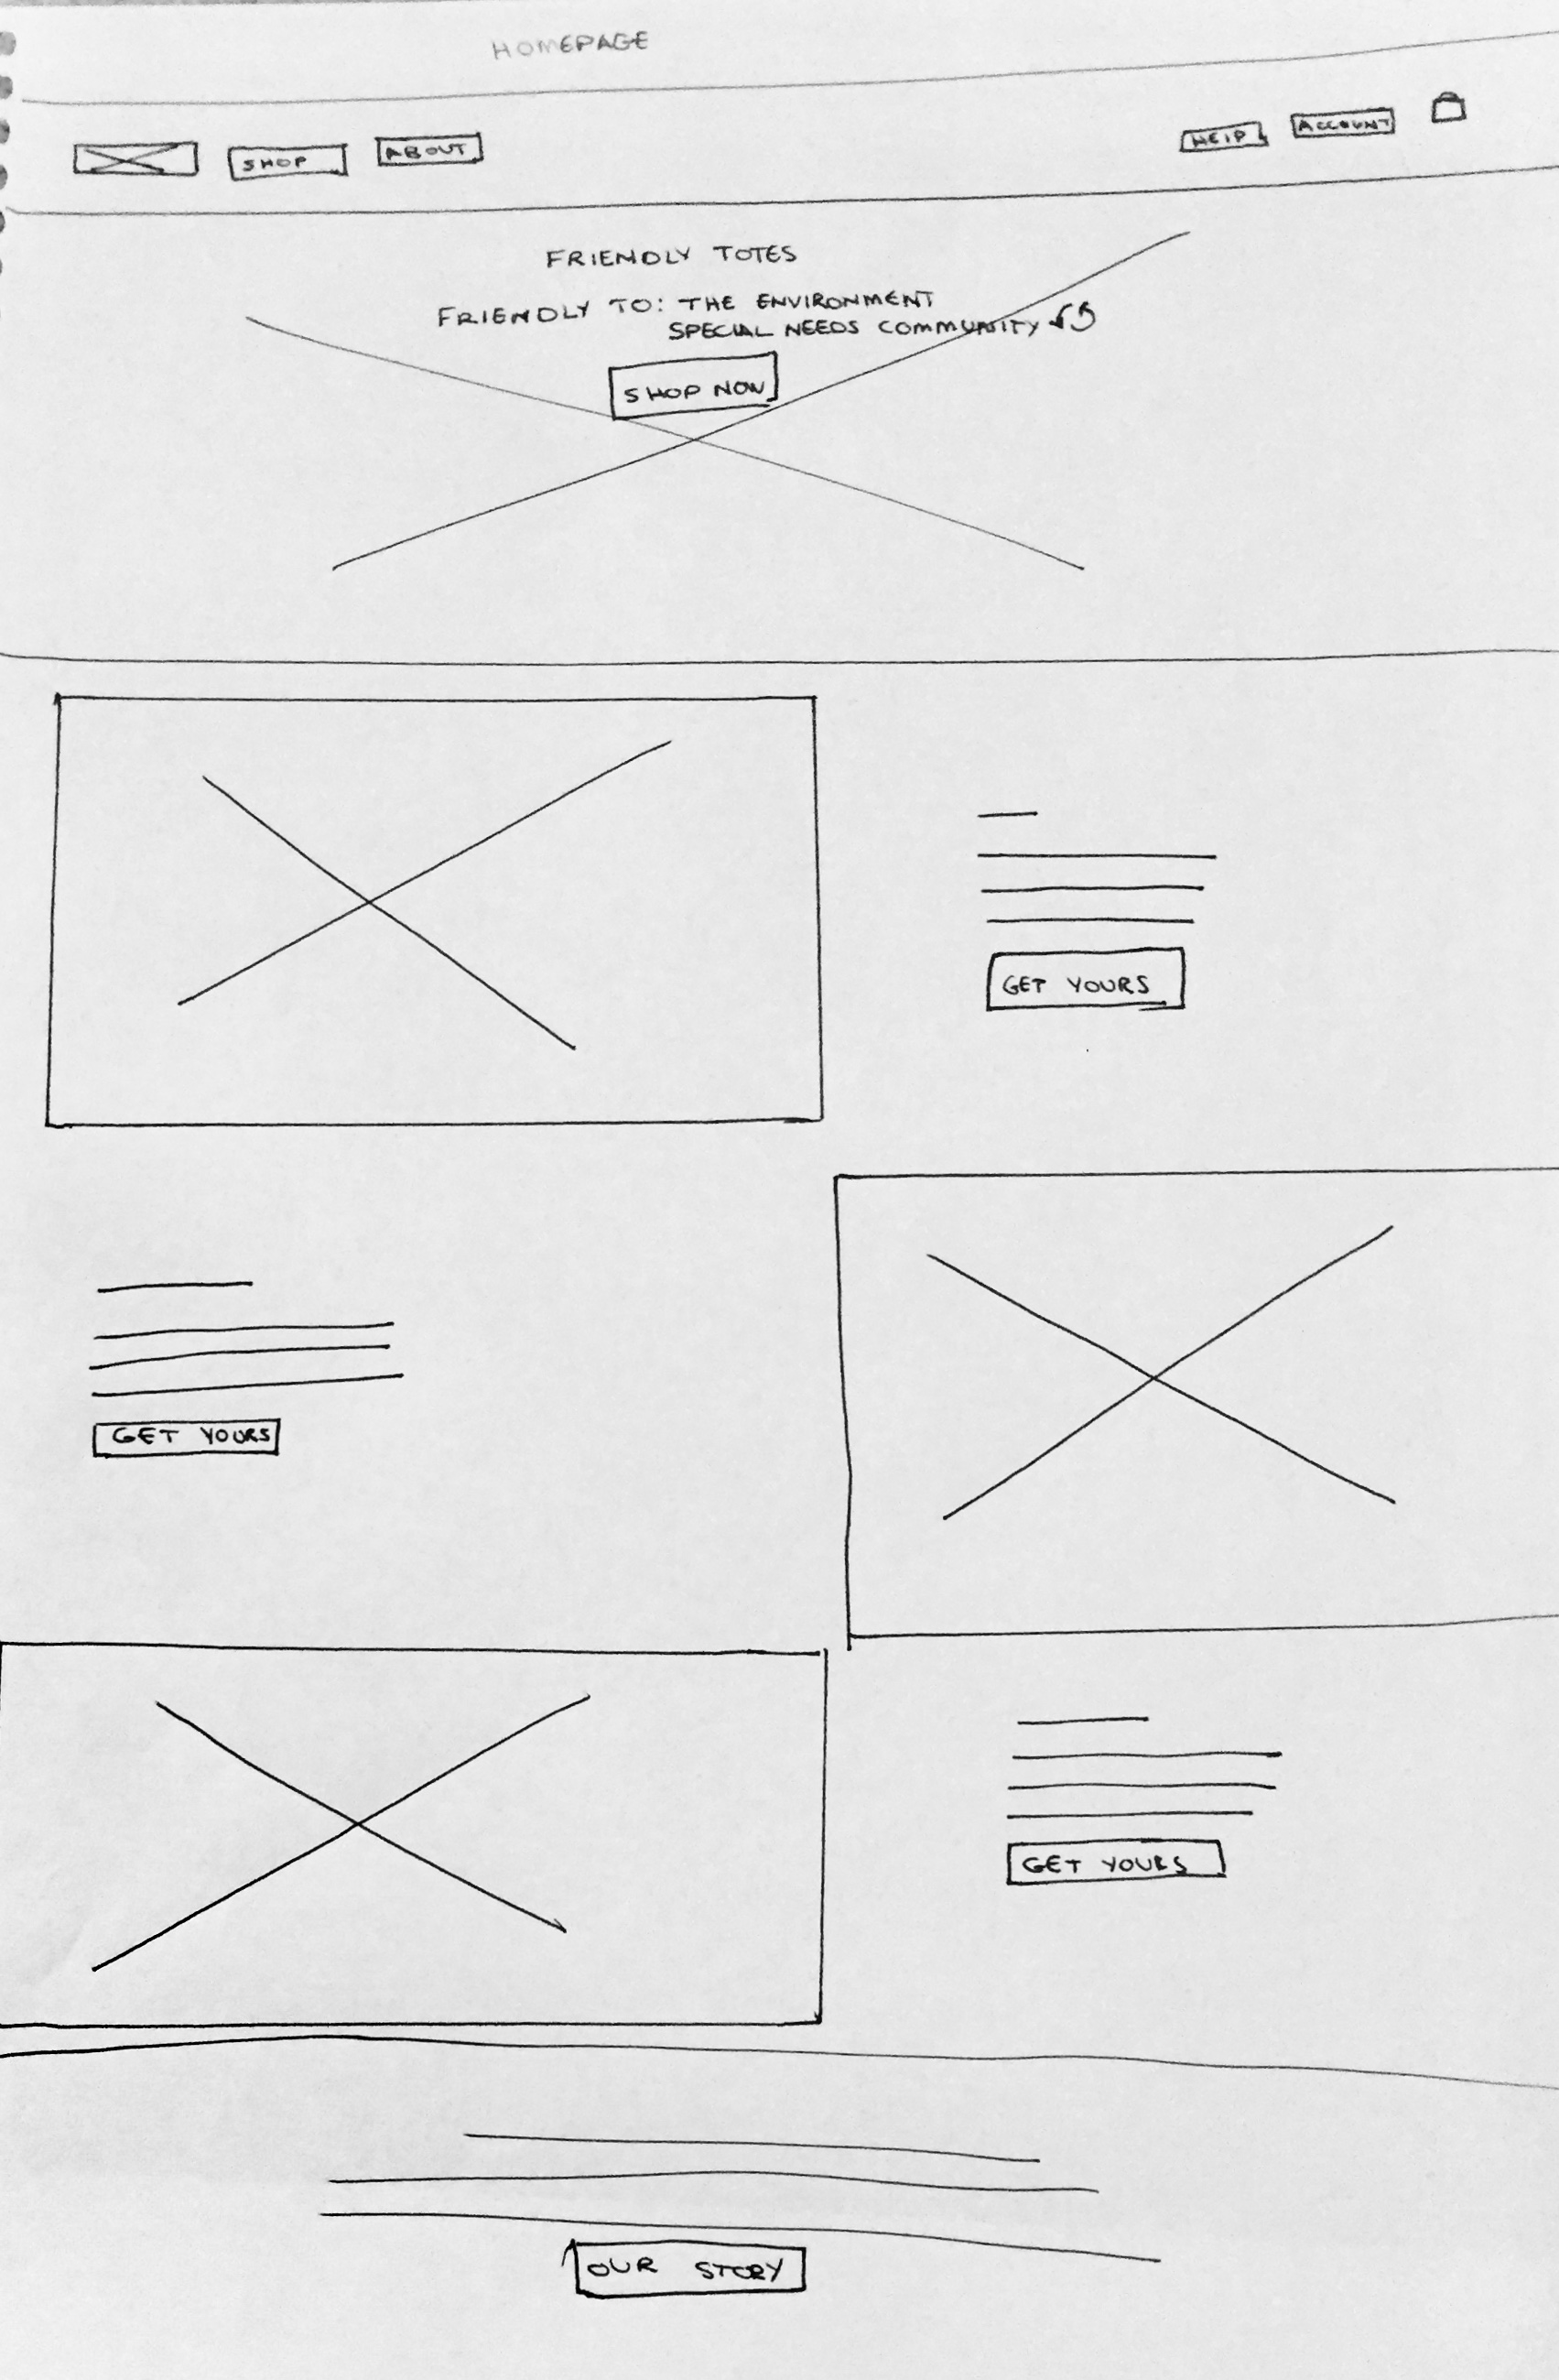 HOMEPAGE
SHOP ABOUT HELP ACCOUNT
FRIENDLY TOTES
FRIENDLY TO: THE ENVIRONMENT
SPECIAL NEEDS COMMUNITY
SHOP NOW
GET YOURS
GET YOURS
GET YOURS
OUR STORY